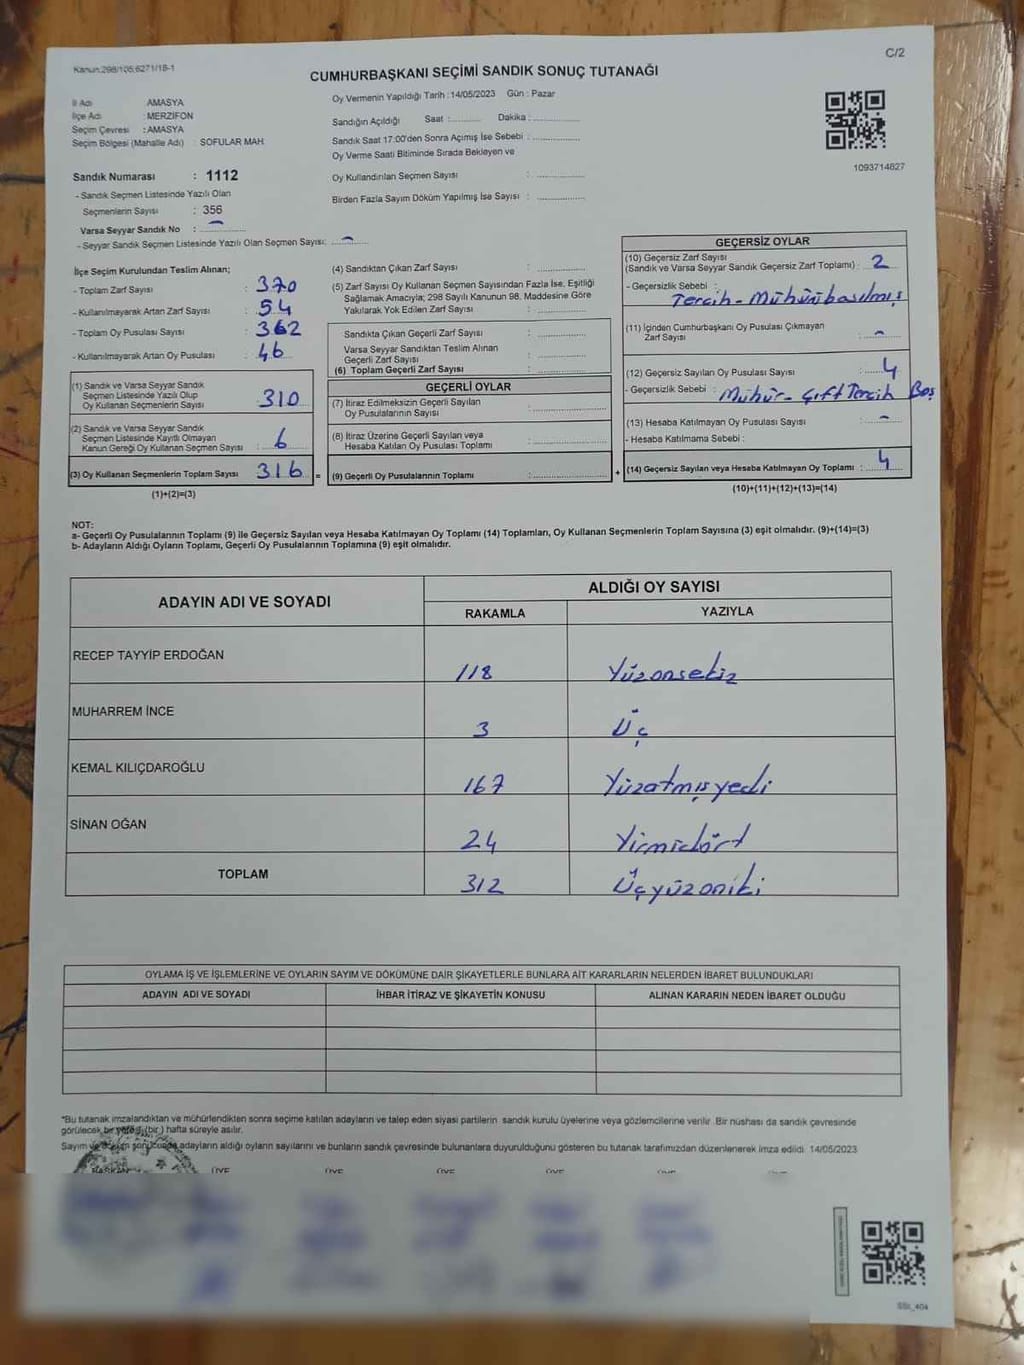 Kanun:298/105;6271/18-1
C/2
CUMHURBAŞKANI SEÇİMİ SANDIK SONUÇ TUTANAĞI
İl Adı : AMASYA
İlçe Adı : MERZİFON
Seçim Çevresi : AMASYA
Seçim Bölgesi (Mahalle Adı) : SOFULAR MAH
Oy Vermenin Yapıldığı Tarih :14/05/2023 Gün : Pazar
Sandığın Açıldığı Saat :.......... Dakika :..............
Sandık Saat 17:00'den Sonra Açılmış İse Sebebi :
Oy Verme Saati Bitiminde Sırada Bekleyen ve
Oy Kullandırılan Seçmen Sayısı :
Birden Fazla Sayım Döküm Yapılmış İse Sayısı :
1093714827
Sandık Numarası : 1112
- Sandık Seçmen Listesinde Yazılı Olan
Seçmenlerin Sayısı : 356
Varsa Seyyar Sandık No : -
- Seyyar Sandık Seçmen Listesinde Yazılı Olan Seçmen Sayısı: -
İlçe Seçim Kurulundan Teslim Alınan;
- Toplam Zarf Sayısı : 370
- Kullanılmayarak Artan Zarf Sayısı : 54
- Toplam Oy Pusulası Sayısı : 362
- Kullanılmayarak Artan Oy Pusulası : 46
(1) Sandık ve Varsa Seyyar Sandık
Seçmen Listesinde Yazılı Olup
Oy Kullanan Seçmenlerin Sayısı : 310
(2) Sandık ve Varsa Seyyar Sandık
Seçmen Listesinde Kayıtlı Olmayan
Kanun Gereği Oy Kullanan Seçmen Sayısı : 6
(3) Oy Kullanan Seçmenlerin Toplam Sayısı 316 =
(1)+(2)=(3)
(4) Sandıktan Çıkan Zarf Sayısı :
(5) Zarf Sayısı Oy Kullanan Seçmen Sayısından Fazla İse, Eşitliği
Sağlamak Amacıyla; 298 Sayılı Kanunun 98. Maddesine Göre
Yakılarak Yok Edilen Zarf Sayısı :
Sandıkta Çıkan Geçerli Zarf Sayısı :
Varsa Seyyar Sandıktan Teslim Alınan
Geçerli Zarf Sayısı :
(6) Toplam Geçerli Zarf Sayısı :
GEÇERLİ OYLAR
(7) İtiraz Edilmeksizin Geçerli Sayılan
Oy Pusulalarının Sayısı :
(8) İtiraz Üzerine Geçerli Sayılan veya
Hesaba Katılan Oy Pusulası Toplamı :
(9) Geçerli Oy Pusulalarının Toplamı : +
GEÇERSİZ OYLAR
(10) Geçersiz Zarf Sayısı
(Sandık ve Varsa Seyyar Sandık Geçersiz Zarf Toplamı) : 2
- Geçersizlik Sebebi :
Tercih - Mühürü basılmış
(11) İçinden Cumhurbaşkanı Oy Pusulası Çıkmayan
Zarf Sayısı : -
(12) Geçersiz Sayılan Oy Pusulası Sayısı : 4
- Geçersizlik Sebebi : Mühür - Çift Tercih Boş
(13) Hesaba Katılmayan Oy Pusulası Sayısı : -
- Hesaba Katılmama Sebebi :
(14) Geçersiz Sayılan veya Hesaba Katılmayan Oy Toplamı : 4
(10)+(11)+(12)+(13)=(14)
NOT:
a- Geçerli Oy Pusulalarının Toplamı (9) ile Geçersiz Sayılan veya Hesaba Katılmayan Oy Toplamı (14) Toplamları, Oy Kullanan Seçmenlerin Toplam Sayısına (3) eşit olmalıdır. (9)+(14)=(3)
b- Adayların Aldığı Oyların Toplamı, Geçerli Oy Pusulalarının Toplamına (9) eşit olmalıdır.
ADAYIN ADI VE SOYADI
ALDIĞI OY SAYISI
RAKAMLA YAZIYLA
RECEP TAYYİP ERDOĞAN 118 Yüzonsekiz
MUHARREM İNCE 3 Üç
KEMAL KILIÇDAROĞLU 167 Yüzatmışyedi
SİNAN OĞAN 24 Yirmidört
TOPLAM 312 Üçyüzoniki
OYLAMA İŞ VE İŞLEMLERİNE VE OYLARIN SAYIM VE DÖKÜMÜNE DAİR ŞİKAYETLERLE BUNLARA AİT KARARLARIN NELERDEN İBARET BULUNDUKLARI
ADAYIN ADI VE SOYADI İHBAR İTİRAZ VE ŞİKAYETİN KONUSU ALINAN KARARIN NEDEN İBARET OLDUĞU
*Bu tutanak imzalandıktan ve mühürlendikten sonra seçime katılan adayların ve talep eden siyasi partilerin sandık kurulu üyelerine veya gözlemcilerine verilir. Bir nüshası da sandık çevresinde
görülecek bir yere 1 (bir) hafta süreyle asılır.
Sayım ve döküm sonucunda adayların aldığı oyların sayılarını ve bunların sandık çevresinde bulunanlara duyurulduğunu gösteren bu tutanak tarafımızdan düzenlenerek imza edildi. 14/05/2023
BAŞKAN ÜYE ÜYE ÜYE ÜYE ÜYE
SSI_404